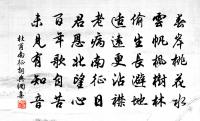 春岸桃花水
雲帆楓樹林
偷生長避地
適遠更沾襟
老病南征日
君恩北望心
百年歌自苦
未見有知音
杜甫南征